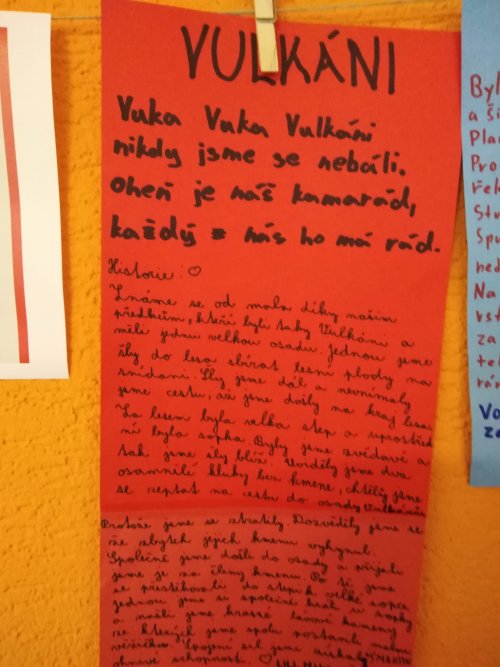 VULKÁNI
Vuka Vuka Vulkáni
nikdy jsme se nebáli.
Oheň je náš kamarád,
každý z nás ho má rád.
Historie: ♡
Známe se od mala díky našim
předkům, kteří byli taky Vulkáni a
měli jednu velkou osadu. Jednou jsme
šly do lesa sbírat lesní plody na
snídani. Šly jsme dál a nevnímaly
jsme cestu, až jsme došly na kraj lesa.
Za lesem byla velká step a uprostřed
ní byla sopka. Byly jsme zvědavé a
tak jsme šly blíž. Uviděly jsme dva
osamnělí kluky bez kmene, chtěly jsme
se zeptat na cestu do osady Vulkánů
Protože jsme se ztratily. Dozvěděly jsme se
že zbytek jejich kmenu vyhynul.
Společně jsme došli do osady a přijali
jsme je za členy kmenu. Po té jsme
se přestěhovali do stepi k velké sopce
jednou jsme si společně hráli u sopky
a našli jsme krásné lávové kameny
ze kterých jsme spolu postavili malou
věžičku. Spojení sil jsme získaly
ohnivé schopnosti. ♡
Byl
a ši
Pla
Pro
řek
Spu
ned
Na
vrst
za